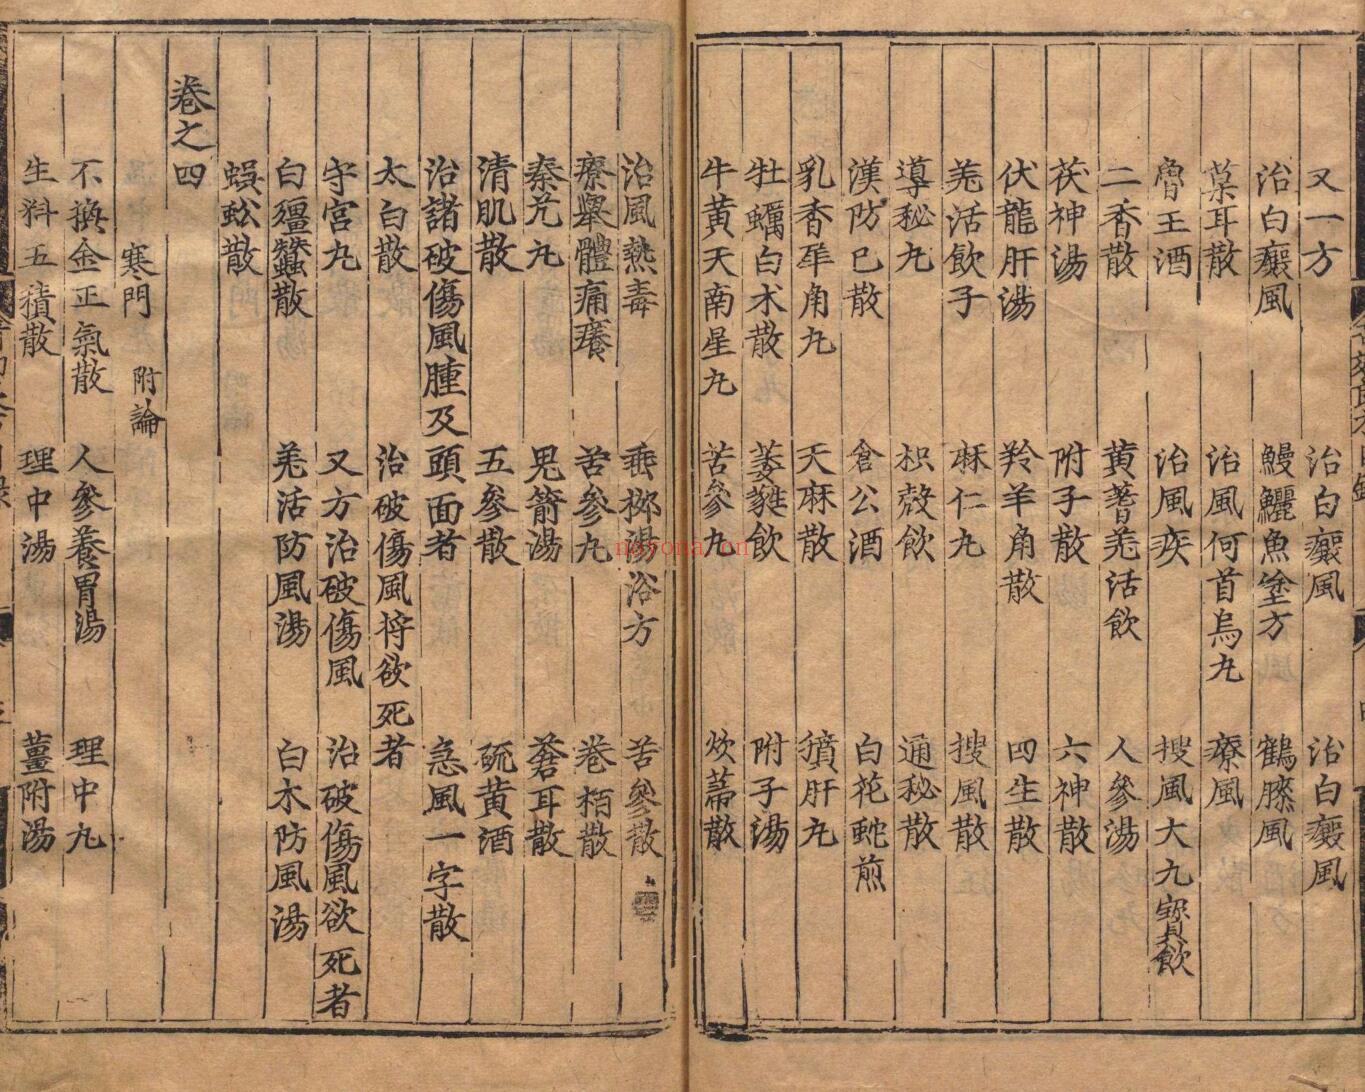 又一方 治白癜風 治白癜風
治白癜風 鰻鱺魚塗方 鶴膝風
菓耳散 治風何首烏丸 療風
魯王酒 治風疾 搜風大九寳飲
二香散 黄蓍羌活飲 人參湯
茯神湯 附子散 六神散
伏龍肝湯 羚羊角散 四生散
羌活飲子 麻仁丸 搜風散
導秘丸 枳殼飲 通秘散
漢防巳散 倉公酒 白花虵煎
乳香犀角丸 天麻散 獖肝丸
牡蠣白术散 萎蕤飲 附子湯
牛黄天南星丸 苦參丸 散
治風熱毒 湯浴方 苦參散
療舉體痛癢 苦參丸 卷栢散
秦艽丸 鬼箭湯 蒼耳散
清肌散 五參散 硫黄酒
治諸破傷風腫及頭面者 急風一字散
太白散 治破傷風將欲死者
守宮丸 又方治破傷風 治破傷風欲死者
白殭蠶散 羌活防風湯 白术防風湯
蜈蚣散
卷之四
寒門 附論
不換金正氣散 人參養胃湯 理中丸
生料五積散 理中湯 薑附湯
nayona.cn